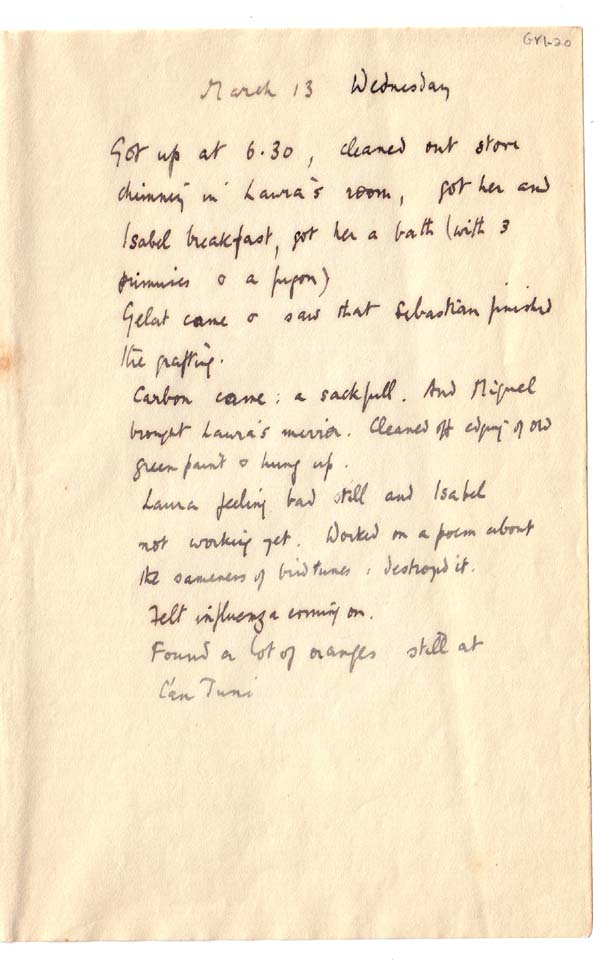 March 13 Wednesday
Got up at 6.30, cleaned out stove
chimney in Laura's room, got her and
Isabel breakfast, got her a bath (with 3
primuses & a fugon)
Gelat came & saw that Sebastian finished
the grafting.
Carbon came: a sackfull. And Miguel
brought Laura's mirror. Cleaned off edging of old
green paint & hung up.
Laura feeling bad still and Isabel
not working yet. Worked on a poem about
the sameness of bird tunes: destroyed it.
Felt influenza coming on.
Found a lot of oranges still at
C'an Tuni